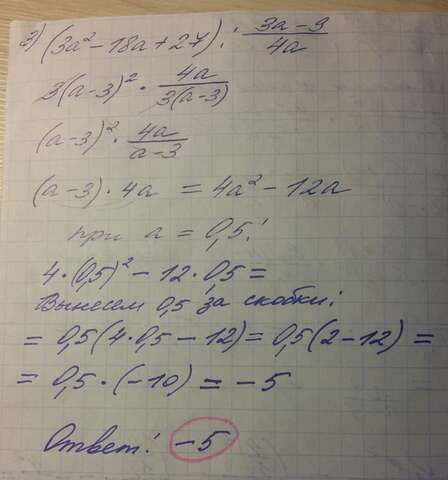 3) (3a² - 18a + 27) : (3a - 9)/(4a)
3(a-3)² · 4a/(3(a-3))
(a-3)² · 4a/(a-3)
(a-3) · 4a = 4a² - 12a
при a = 0,5:
4·(0,5)² - 12·0,5 =
Вынесем 0,5 за скобки:
= 0,5(4·0,5 - 12) = 0,5(2-12) =
= 0,5·(-10) = -5
Ответ: -5